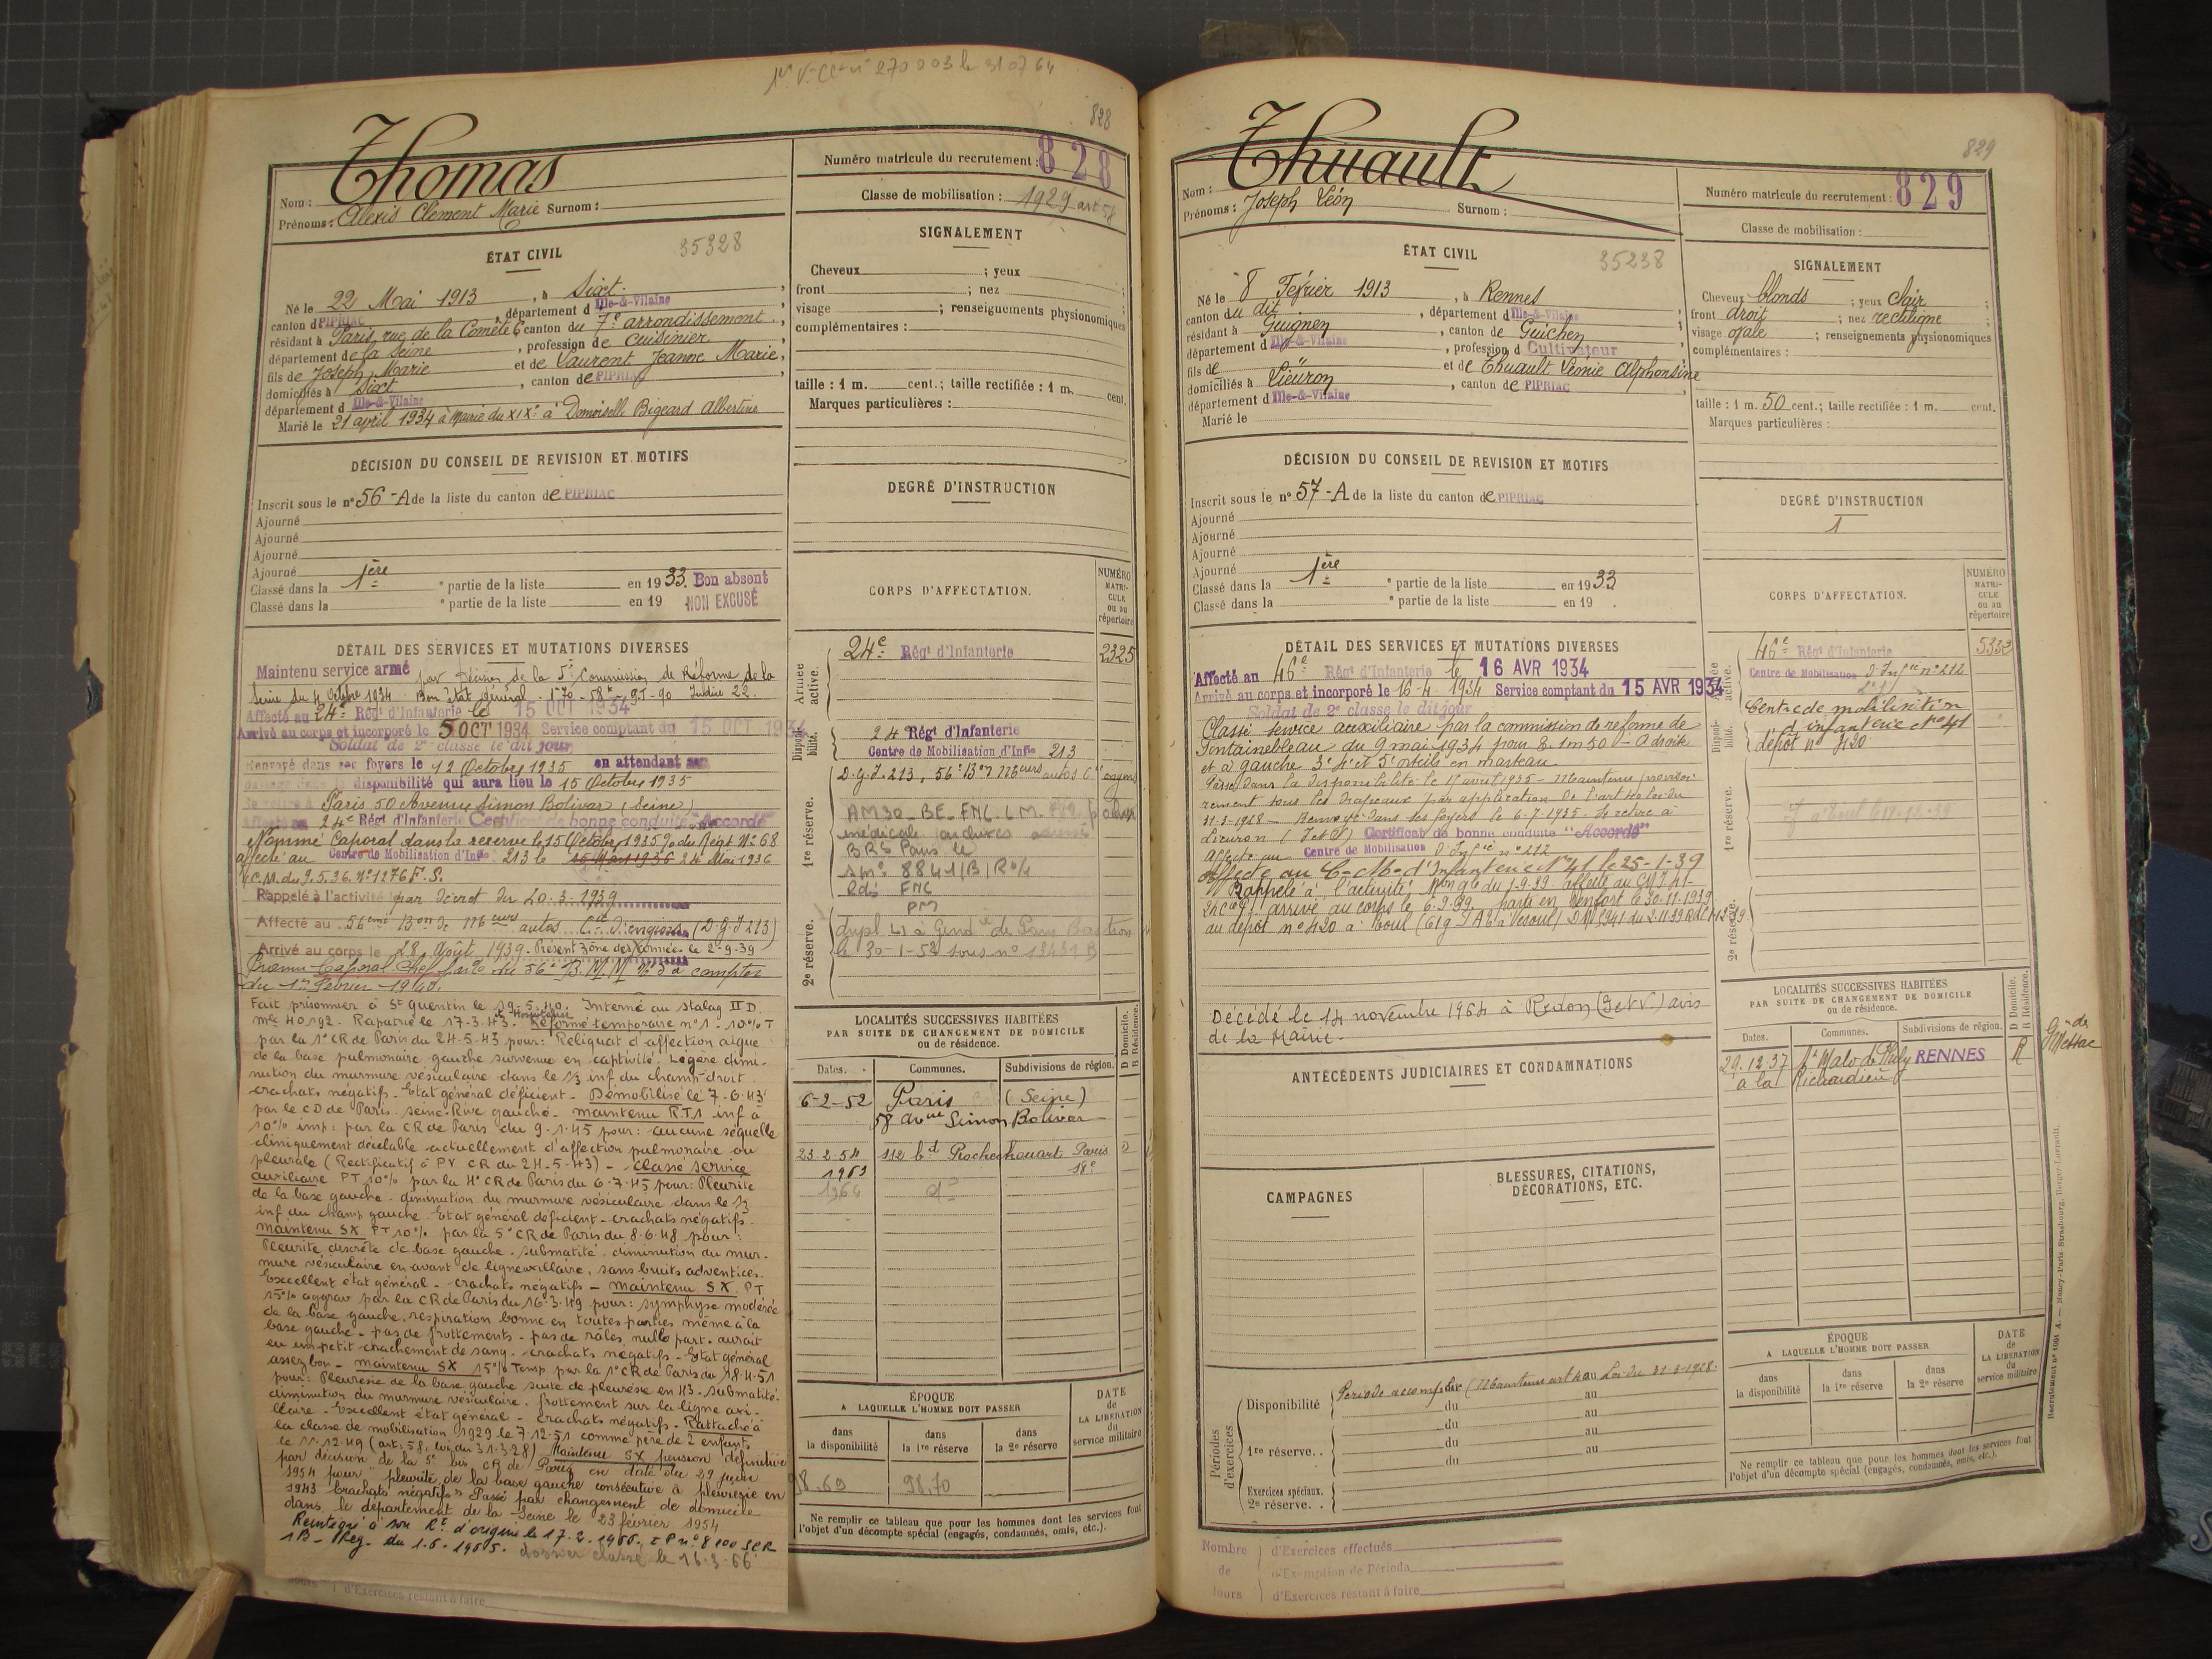 828
Thomas
Nom :
Prénoms : Alexis Clément Marie Surnom :
Numéro matricule du recrutement : 828
Classe de mobilisation : 1929 art 58
ÉTAT CIVIL
35328
Né le 22 Mai 1913, à Sixt,
canton d PIPRIAC, département d Ille-&-Vilaine
résidant à Paris, rue de la Comète 6 canton du 7e arrondissement,
département de la Seine, profession de cuisinier
fils de Joseph Marie et de Laurent Jeanne Marie,
domiciliés à Sixt, canton de PIPRIAC
département d Ille-&-Vilaine
Marié le 21 avril 1934 à Mairie du XIXe à Demoiselle Bigeard Albertine
DÉCISION DU CONSEIL DE REVISION ET MOTIFS
Inscrit sous le n° 56-A de la liste du canton de PIPRIAC
Ajourné
Ajourné
Ajourné
Ajourné
Classé dans la 1ère partie de la liste en 1933. Bon absent
Classé dans la e partie de la liste en 19 NON EXCUSÉ
DÉTAIL DES SERVICES ET MUTATIONS DIVERSES
Maintenu service armé par décision de la Commission de Réforme de la
Seine du 4 Octobre 1934 Bon état général
Affecté au 24e Régt d'Infanterie le 15 OCT 1934
Arrivé au corps et incorporé le 5 OCT 1934 Service comptant du 15 OCT 1934
Soldat de 2e classe le dit jour
Renvoyé dans ses foyers le 12 Octobre 1935 en attendant son
passage dans la disponibilité qui aura lieu le 15 Octobre 1935
Se retire à Paris 50 Avenue Simon Bolivar (Seine)
Affecté au 24e Régt d'Infanterie Certificat de bonne conduite "Accordé"
Nommé Caporal dans la réserve le 15 Octobre 1935 % du Régt N° 68
affecté au Centre de Mobilisation d'Infie 213 le 15 Mars 1936 24 Mai 1936
C.M. du 9.5.36. N° 1276 F.S.
Rappelé à l'activité par décret du 20-3-1939
Affecté au 56ème Bon de Mteurs autos Cie d'engins (D.G.I 213)
Arrivé au corps le 28 Août 1939. Présent zône des armées le 2-9-39
Promu Caporal Chef du 56e B.M.M à compter
du 1er Février 1940.
Fait prisonnier à St Quentin le 19-5-40. Interné au stalag II D
mle 40192. Rapatrié le 17-3-43. Réformé temporaire n°1. 10% T
par la 1° CR de Paris du 24-5-43 pour : Reliquat d'affection aigue
de la base pulmonaire gauche survenue en captivité. Légère dimi-
nution du murmure vésiculaire dans le 1/3 inf du champ droit.
crachats négatifs. Etat général déficient. Démobilisé le 7-6-43
par le CD de Paris seine Rive gauche. maintenu RT1 inf à
10% imp : par la CR de Paris du 9-1-45 pour : aucune séquelle
cliniquement décelable actuellement d'affection pulmonaire ou
pleurale (Rectificatif à PV CR du 24-5-43) - classé service
auxiliaire PT 10% par la 4° CR de Paris du 6-7-45 pour : Pleurite
de la base gauche. diminution du murmure vésiculaire dans le 1/3
inf du champ gauche. Etat général déficient - crachats négatifs.
maintenu SX PT 10% par la 5° CR de Paris du 8-6-48 pour :
Pleurite discrète de base gauche. submatité. diminution du mur-
mure vésiculaire en avant de ligne axillaire, sans bruits adventices.
Excellent état général - crachats négatifs - maintenu SX PT
15% aggrav par la CR de Paris du 16-3-49 pour : symphyse modérée
de la base gauche, respiration bonne en toutes parties même à la
base gauche - pas de frottements - pas de râles nulle part. aurait
eu un petit crachement de sang. crachats négatifs - Etat général
assez bon - maintenu SX 15% Temp par la 1° CR de Paris du 18-4-51
pour : Pleurésie de la base gauche suite de pleurésie en 43. submatité.
diminution du murmure vésiculaire. frottement sur la ligne axi-
llaire - Excellent état général - crachats négatifs - Rattaché à
la classe de mobilisation 1929 le 7-12-51 comme père de 2 enfants
le 11-12-49 (art. 58, loi du 31-3-28) Maintenu SX pension définitive
par décision de la 5e bis CR de Paris en date du 29 juin
1954 pour "pleurite de la base gauche consécutive à pleurésie en
1943 Crachats négatifs" Passé par changement de domicile
dans le département de la Seine le 23 février 1954
Réintégré à son Rt d'origine le 17-2-1966.
dossier classé le 16-3-66
d'Exercices restant à faire
SIGNALEMENT
Cheveux ; yeux
front ; nez
visage ; renseignements physionomiques
complémentaires :
taille : 1 m. cent.; taille rectifiée : 1 m. cent.
Marques particulières :
DEGRÉ D'INSTRUCTION
CORPS D'AFFECTATION.
NUMÉRO MATRI-CULE ou au répertoire
Armée active.
24e Régt d'Infanterie 2325
Disponibilité.
24 Régt d'Infanterie
Centre de Mobilisation d'Infie 213
1re réserve.
D.G.I. 213, 56e Bon Mteurs autos Cie engins
AM30-BE-FNC-LM
médicale archives
BRS Paris le
8841/B/R%
FNC
PM
2e réserve.
dupl L1 à Gendie de Paris
le 30-1-52 sous n° 13431 B
LOCALITÉS SUCCESSIVES HABITÉES
PAR SUITE DE CHANGEMENT DE DOMICILE
ou de résidence.
D Domicile. R Résidence.
Dates. Communes. Subdivisions de région.
6-2-52 Paris (Seine)
58 Avnue Simon Bolivar
23-2-54 112 bd Rochechouart Paris D
1963 18e
1964 do
ÉPOQUE
A LAQUELLE L'HOMME DOIT PASSER
DATE de LA LIBÉRATION du service militaire
dans la disponibilité
dans la 1re réserve
dans la 2e réserve
98.69 98.70
Ne remplir ce tableau que pour les hommes dont les services font
l'objet d'un décompte spécial (engagés, condamnés, omis, etc.).
829
Thuault
Nom :
Prénoms : Joseph Léon Surnom :
Numéro matricule du recrutement : 829
Classe de mobilisation :
ÉTAT CIVIL
35238
Né le 8 Février 1913, à Rennes
canton du dit, département d Ille-&-Vilaine
résidant à Guignen, canton de Guichen
département d Ille-&-Vilaine, profession d Cultivateur
fils de et de Thuault Léonie Alphonsine
domiciliés à Lieuron, canton de PIPRIAC
département d Ille-&-Vilaine
Marié le
DÉCISION DU CONSEIL DE REVISION ET MOTIFS
Inscrit sous le n° 57-A de la liste du canton de PIPRIAC
Ajourné
Ajourné
Ajourné
Ajourné
Classé dans la 1ère partie de la liste en 1933
Classé dans la e partie de la liste en 19 .
DÉTAIL DES SERVICES ET MUTATIONS DIVERSES
Affecté au 46e Régt d'Infanterie le 16 AVR 1934
Arrivé au corps et incorporé le 16-4-1934 Service comptant du 15 AVR 1934
Soldat de 2e classe le dit jour
Classé service auxiliaire par la commission de réforme de
Fontainebleau du 9 mai 1934 pour 1m50 - A droite
et à gauche 3e 4e et 5e orteils en marteau.
Passé dans la disponibilité le 15 avril 1935 - Maintenu provisoi-
rement sous les drapeaux par application de l'art 40 loi du
31-3-1928 - Renvoyé dans ses foyers le 6-7-1935. Se retire à
Lieuron (I et V) Certificat de bonne conduite "Accordé"
Affecté au Centre de Mobilisation d'Infie n° 212
Affecté au C-M-d'Infanterie N° 41 le 25-1-39
Rappelé à l'activité, Mon gle du 2-9-39 affecté au CMI 41
arrivé au corps le 6-9-39. parti en renfort le 30-11-1939
au dépôt n° 420 à Toul
Décédé le 14 novembre 1964 à Redon (I et V) avis
de la Mairie.
ANTÉCÉDENTS JUDICIAIRES ET CONDAMNATIONS
CAMPAGNES
BLESSURES, CITATIONS, DÉCORATIONS, ETC.
Périodes d'exercices
Disponibilité Période accomplie (Maintenu art 40 Loi du 31-3-1928.
du au
du au
1re réserve. . du au
du
Exercices spéciaux.
2e réserve. .
Nombre de Jours
d'Exercices effectués
d'Exemption de Période
d'Exercices restant à faire
SIGNALEMENT
Cheveux blonds ; yeux clair ;
front droit ; nez rectiligne ;
visage ovale ; renseignements physionomiques
complémentaires :
taille : 1 m. 50 cent.; taille rectifiée : 1 m. cent.
Marques particulières :
DEGRÉ D'INSTRUCTION
1
CORPS D'AFFECTATION.
NUMÉRO MATRI-CULE ou au répertoire
Armée active.
46e Régt d'Infanterie 5333
Centre de Mobilisation d'Infie n° 212
Disponibilité.
Centre de mobilisation
d'infanterie N° 41
dépôt n° 420
1re réserve.
2e réserve.
LOCALITÉS SUCCESSIVES HABITÉES
PAR SUITE DE CHANGEMENT DE DOMICILE
ou de résidence.
D Domicile. R Résidence.
Dates. Communes. Subdivisions de région.
29-12-37 St Malo de Phily RENNES R Gie de Messac
à la Richardieu
ÉPOQUE
A LAQUELLE L'HOMME DOIT PASSER
DATE de LA LIBÉRATION du service militaire
dans la disponibilité
dans la 1re réserve
dans la 2e réserve
Ne remplir ce tableau que pour les hommes dont les services font
l'objet d'un décompte spécial (engagés, condamnés, omis, etc.).